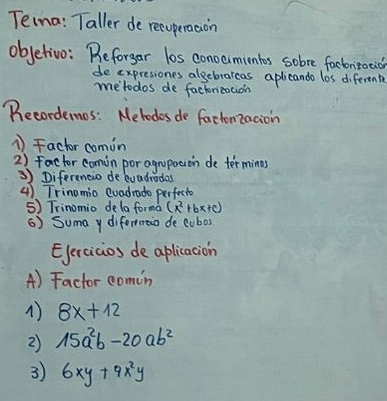 Tema: Taller de recuperación
objetivo: Reforzar los conocimientos sobre factorización
de expresiones algebraicas aplicando los diferente
métodos de factorización
Recordemos: Metodos de factorización
1) Factor común
2) Factor común por agrupación de términos
3) Diferencia de cuadrados
4) Trinomio cuadrado perfecto
5) Trinomio de la forma (x²+bx+c)
6) Suma y diferencia de cubos
Ejercicios de aplicación
A) Factor común
1) 8x+12
2) 15a²b-20ab²
3) 6xy+9x²y